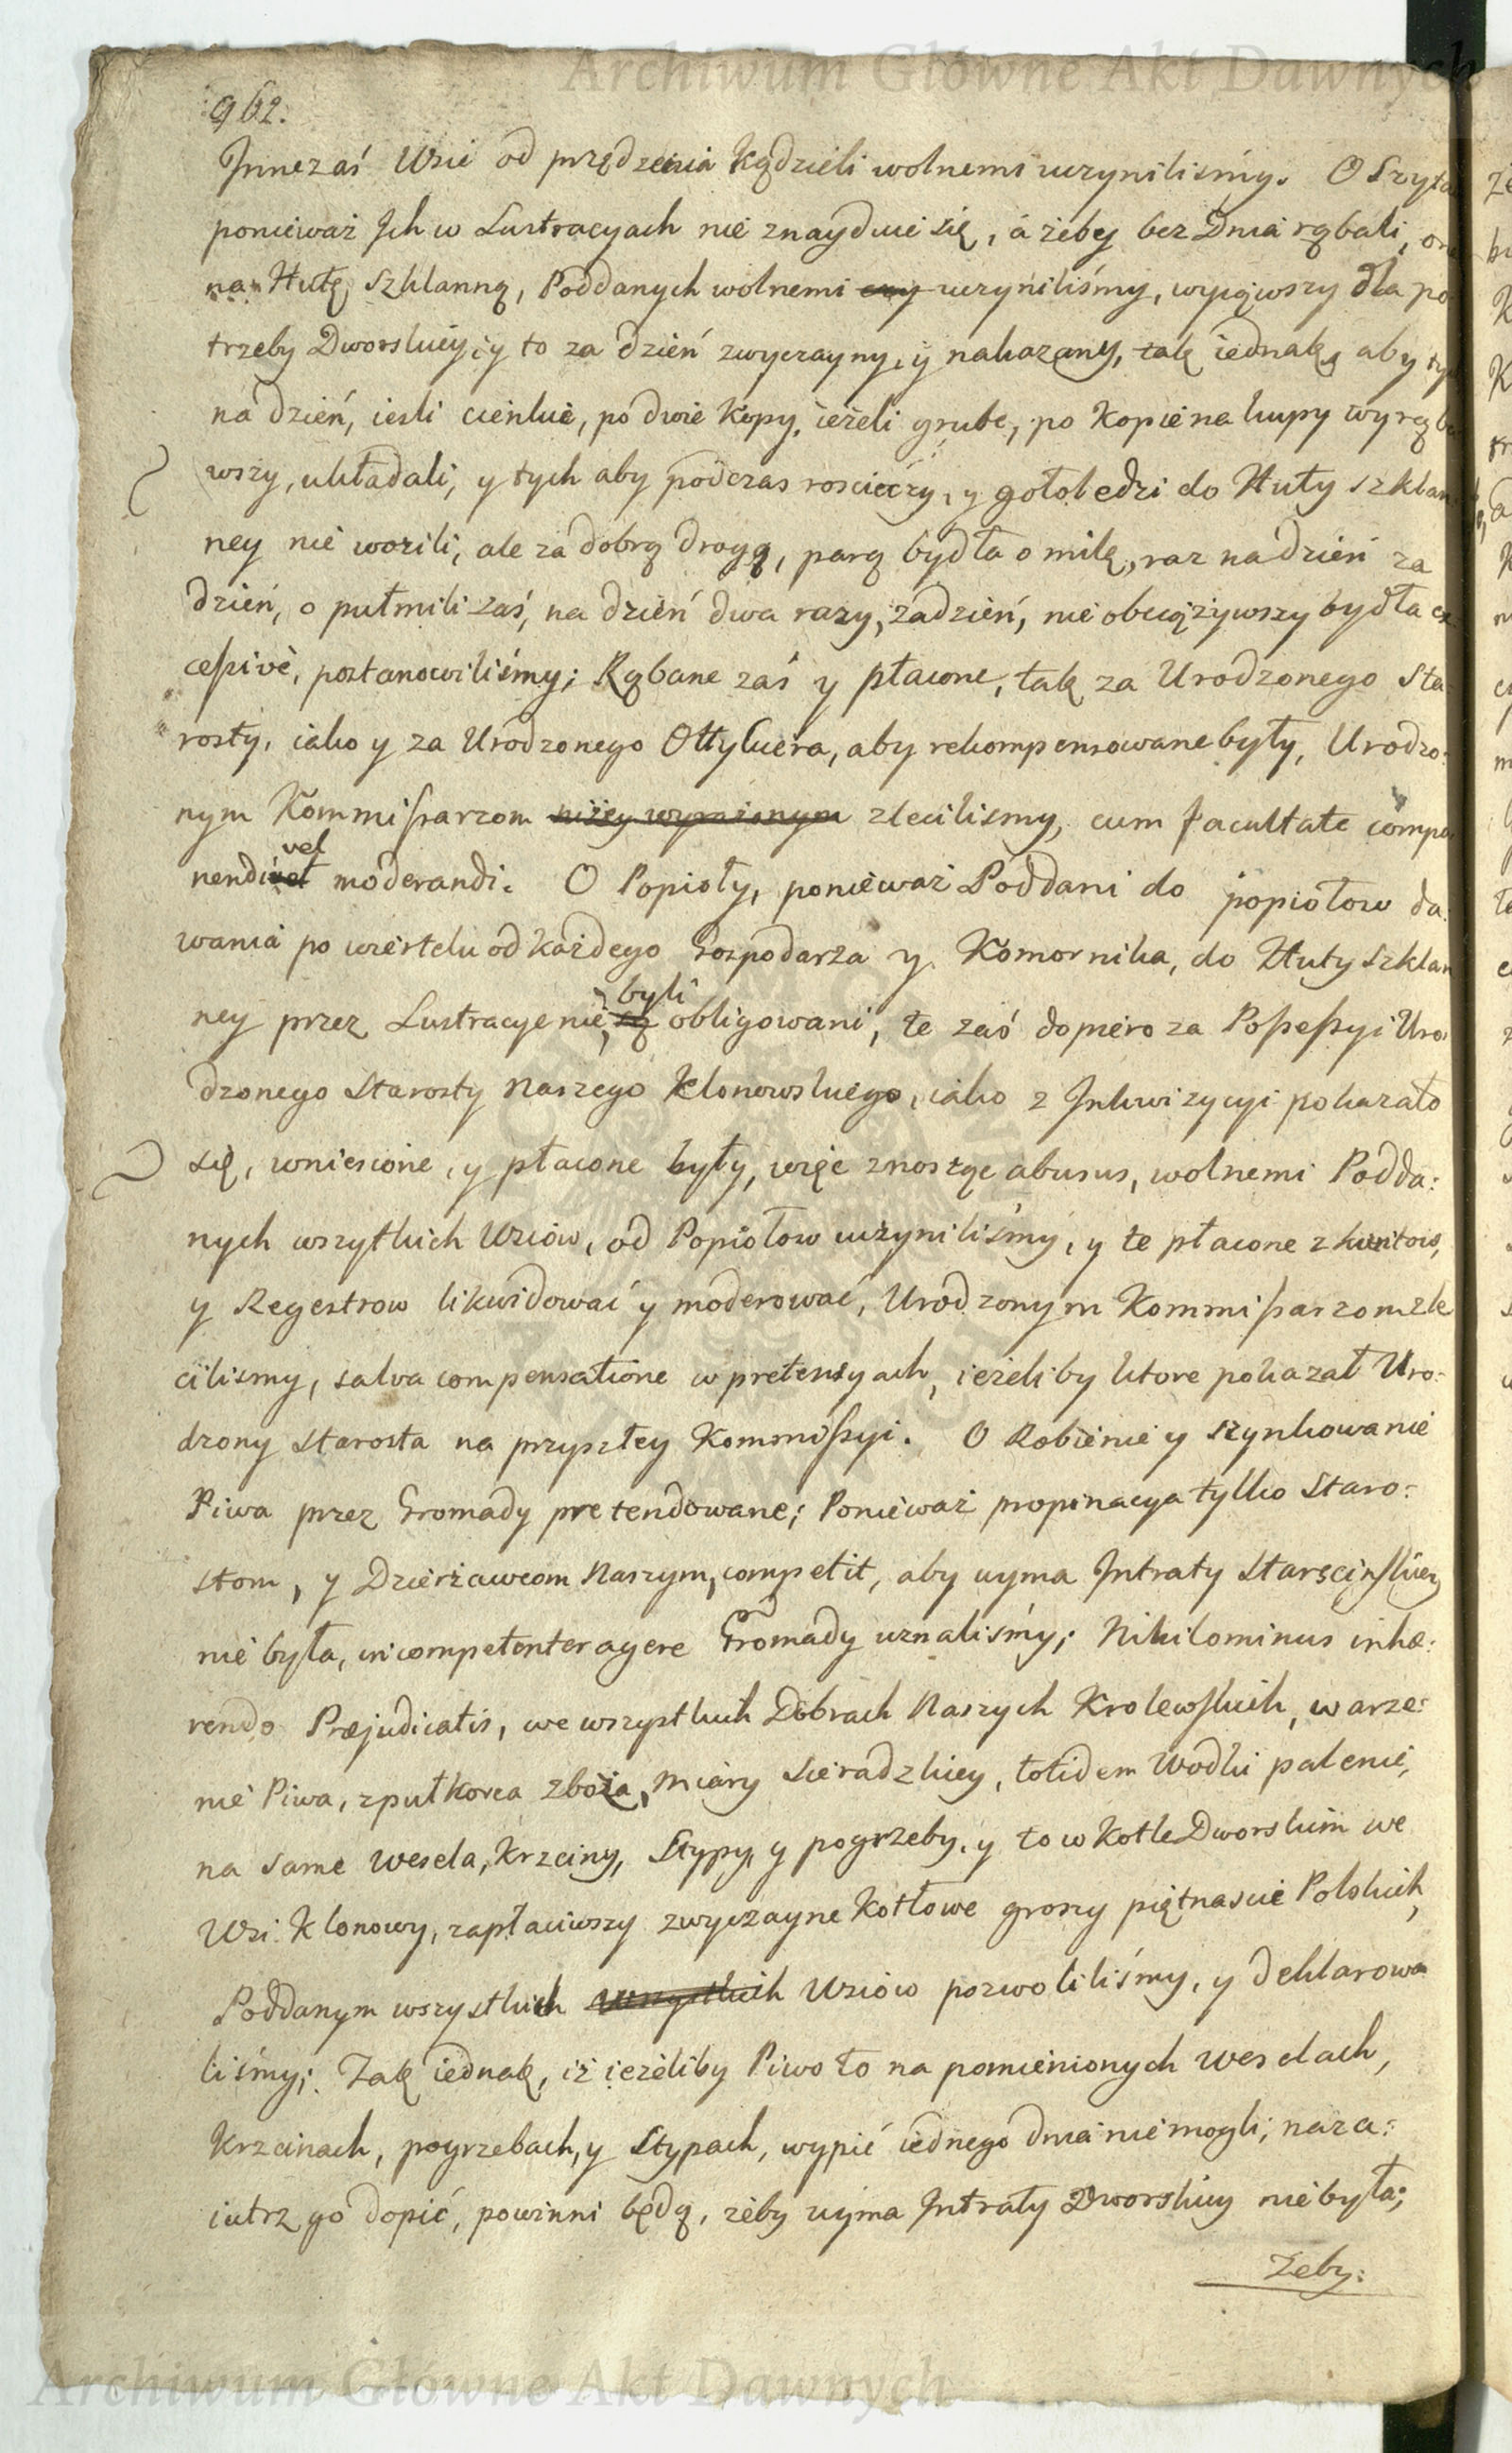 Archiwum Główne Akt Dawnych
962.
Jnne zaś Wsie od przędzenia Kądzieli wolnemi uczyniliśmy. O Szyta
ponieważ Jch w Lustracyach nie znayduie się, á żeby bez Dnia rąbali, one
na Hutę Szklanną, Poddanych wolnemi czy uczyniliśmy, wyiąwszy dla po
trzeby Dworskiey, y to za dzień zwyczayny, y nakazany, tak iednak, aby tych
na dzień, iesli cienkie, po dwie Kopy, ieżeli grube, po Kopie na kupy wyrąba
wszy, układali, y tych aby podczas roscieczy, y gołoledzi do Huty szklan
ney nie wozili, ale za dobrą drogą, parą bydła o milę, raz na dzień za
dzień, o pułmili zaś, na dzień dwa razy, za dzień, nie obciążywszy bydła ex
cessivè, postanowiliśmy; Rąbane zaś y pławne, tak za Urodzonego Sta
rosty, iako y za Urodzonego Ottykiera, aby rekompensowane były, Urodzo:
nym Kommissarzom niżey wyrażonym zleciliśmy, cum facultate compo
nendi vel vel moderandi. O Popioły, ponieważ Poddani do popiołow da
wania po wiertelu od każdego Gospodarza y Komornika, do Huty szklan
ney przez Lustracye nie są byli obligowani, te zaś dopiero za Possessyi Uro
dzonego Starosty Naszego Klonowskiego, iako z Jnkwizycyi pokazało
się, wniesione, y płacone były, więc znosząc abusus, wolnemi Podda:
nych wszytkich Wsiów, od Popiołow uczyniliśmy, y te płacone z kwitow,
y Regestrow likwidować y moderować, Urodzonym Kommissarzom zle
ciliśmy, salva compensatione w pretensyach, ieżeliby ktore pokazał Uro:
dzony Starosta na przyszłey Kommissyi. O Robienie y szynkowanie
Piwa przez Gromady pretendowane; Ponieważ propinacya tylko Staro:
stom, y Dzierżawcom Naszym, competit, aby uyma Jntraty Starścińskiey
nie była, incompetenter agere Gromady uznaliśmy; Nihilominus inhæ:
rendo Præjudicatis, we wszystkich Dobrach Naszych Krolewskich, warze:
nie Piwa, z pułkorca zboża, Miary Sieradzkiey, totidem Wodki palenie,
na same Wesela, Krzciny, Stypy, y pogrzeby, y to w Kotle Dworskim we
Wsi Klonowy, zapłaciwszy zwyczayne Kotłowe groszy piętnascie Polskich,
Poddanym wszystkich wszystkich Wsiów pozwoliliśmy, y deklarowa
liśmy; Tak iednak, iż ieżeliby Piwo to na pomienionych Weselach,
Krzcinach, pogrzebach, y Stypach, wypić iednego dnia nie mogli, naza:
iutrz go dopić, powinni będą, żeby uyma Jntraty Dworskiey nie była;
Żeby:
Archiwum Główne Akt Dawnych